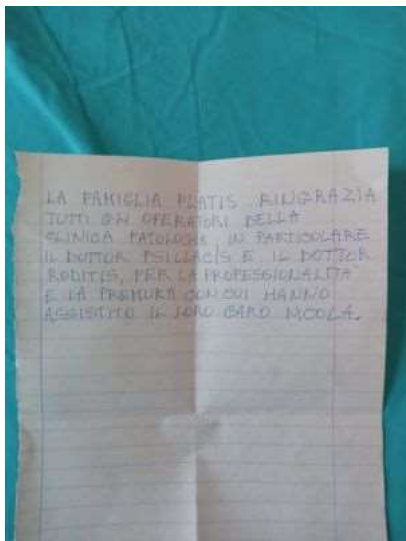 LA FAMIGLIA PLATIS RINGRAZIA
TUTTI GLI OPERATORI DELLA
CLINICA PATOLOGICA IN PARTICOLARE
IL DOTTOR PSILLACIS E IL DOTTOR
RODITIS, PER LA PROFESSIONALITA'
E LA PREMURA CON CUI HANNO
ASSISTITO IL LORO CARO NICOLA.